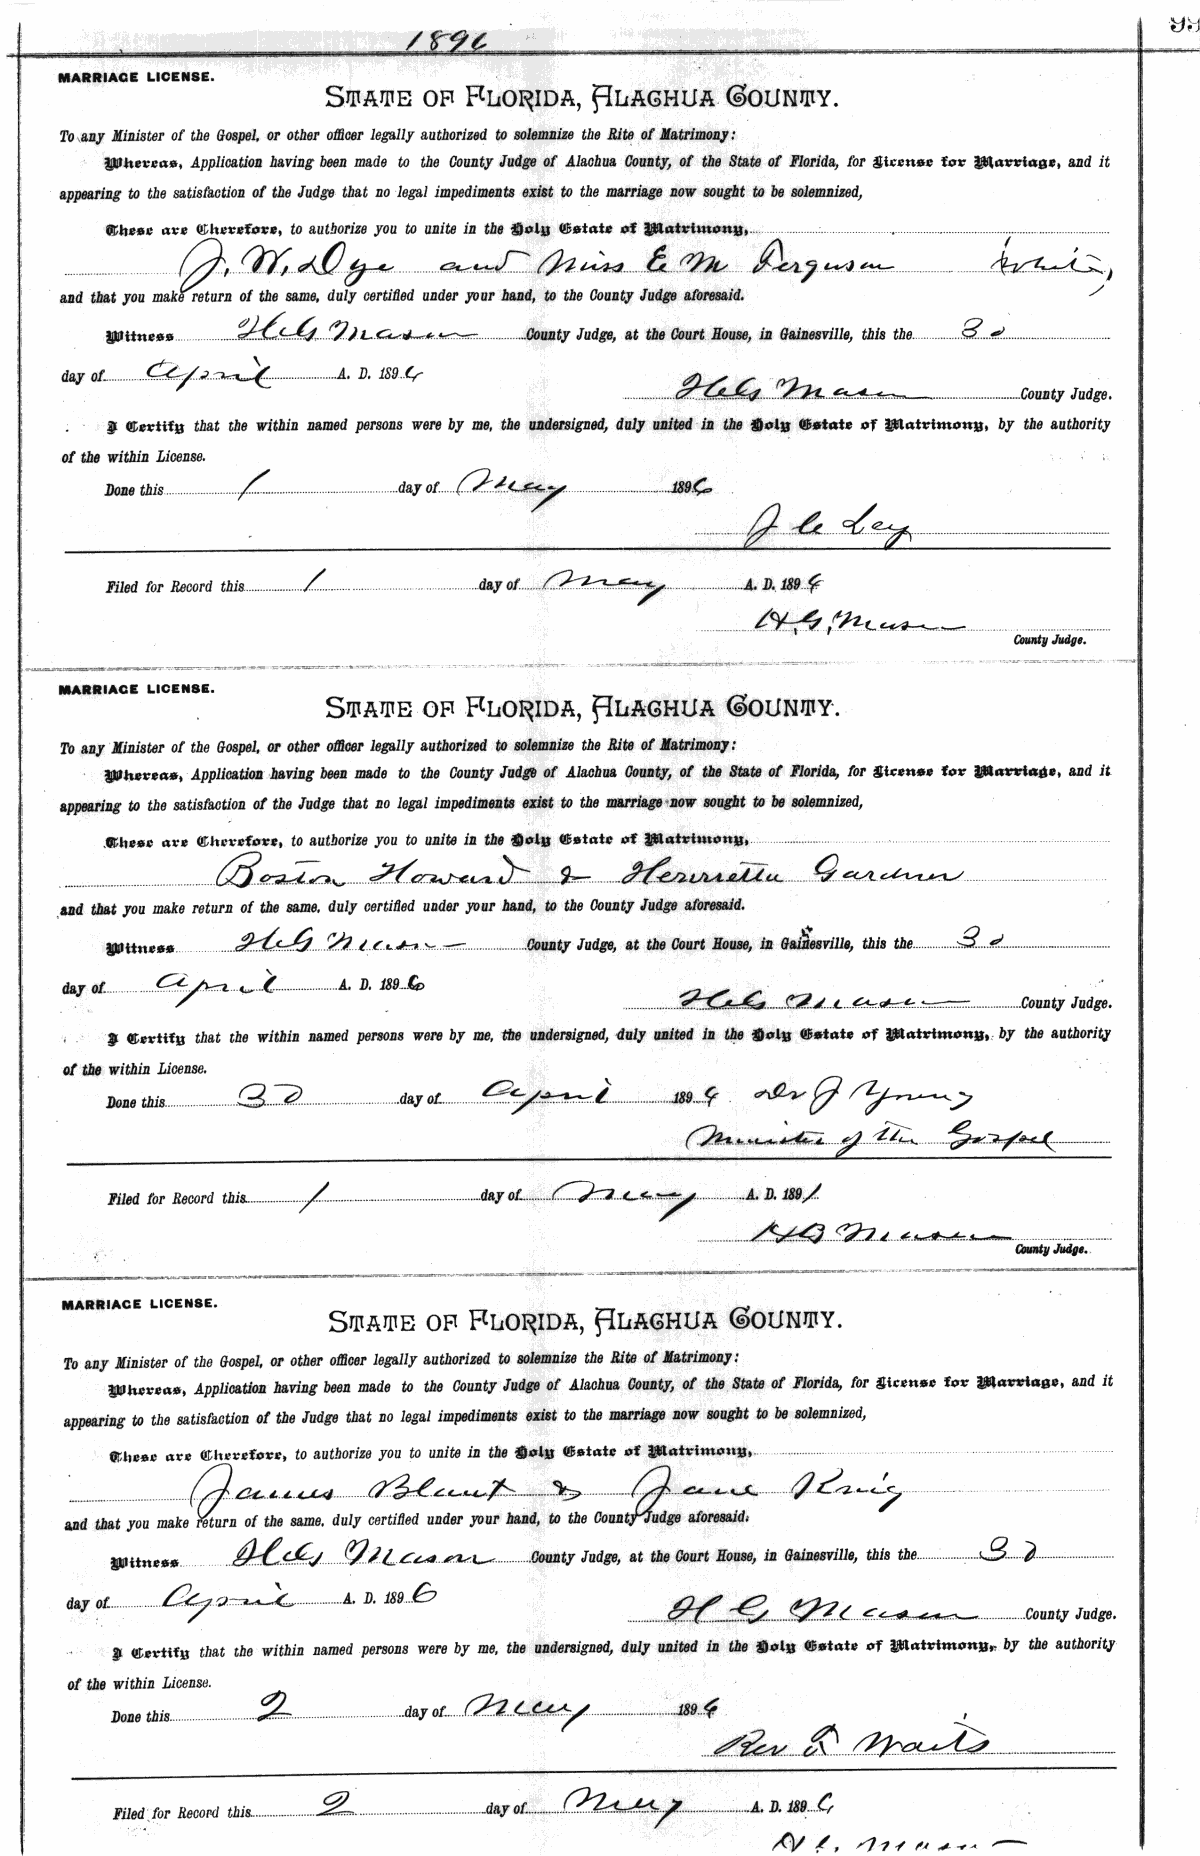 1896
99
MARRIAGE LICENSE.
STATE OF FLORIDA, ALACHUA COUNTY.
To any Minister of the Gospel, or other officer legally authorized to solemnize the Rite of Matrimony:
Whereas, Application having been made to the County Judge of Alachua County, of the State of Florida, for License for Marriage, and it
appearing to the satisfaction of the Judge that no legal impediments exist to the marriage now sought to be solemnized,
These are Therefore, to authorize you to unite in the Holy Estate of Matrimony,
J. W. Dye and Miss E M Ferguson White,
and that you make return of the same, duly certified under your hand, to the County Judge aforesaid.
Witness H G Mason County Judge, at the Court House, in Gainesville, this the 30
day of April A. D. 1896
H G Mason County Judge.
I Certify that the within named persons were by me, the undersigned, duly united in the Holy Estate of Matrimony, by the authority
of the within License.
Done this 1 day of May 1896
J C Ley
Filed for Record this 1 day of May A. D. 1896
H. G. Mason
County Judge.
MARRIAGE LICENSE.
STATE OF FLORIDA, ALACHUA COUNTY.
To any Minister of the Gospel, or other officer legally authorized to solemnize the Rite of Matrimony:
Whereas, Application having been made to the County Judge of Alachua County, of the State of Florida, for License for Marriage, and it
appearing to the satisfaction of the Judge that no legal impediments exist to the marriage now sought to be solemnized,
These are Therefore, to authorize you to unite in the Holy Estate of Matrimony,
Boston Howard & Henrietta Gardner
and that you make return of the same, duly certified under your hand, to the County Judge aforesaid.
Witness H G Mason County Judge, at the Court House, in Gainesville, this the 30
day of April A. D. 1896
H G Mason County Judge.
I Certify that the within named persons were by me, the undersigned, duly united in the Holy Estate of Matrimony, by the authority
of the within License.
Done this 30 day of April 1896 Dr J Young
Minister of the Gospel
Filed for Record this 1 day of May A. D. 1891
H G Mason
County Judge.
MARRIAGE LICENSE.
STATE OF FLORIDA, ALACHUA COUNTY.
To any Minister of the Gospel, or other officer legally authorized to solemnize the Rite of Matrimony:
Whereas, Application having been made to the County Judge of Alachua County, of the State of Florida, for License for Marriage, and it
appearing to the satisfaction of the Judge that no legal impediments exist to the marriage now sought to be solemnized,
These are Therefore, to authorize you to unite in the Holy Estate of Matrimony,
James Blunt & Jane King
and that you make return of the same, duly certified under your hand, to the County Judge aforesaid.
Witness H G Mason County Judge, at the Court House, in Gainesville, this the 30
day of April A. D. 1896
H G Mason County Judge.
I Certify that the within named persons were by me, the undersigned, duly united in the Holy Estate of Matrimony, by the authority
of the within License.
Done this 2 day of May 1896
Rev F Waits
Filed for Record this 2 day of May A. D. 1896
H G Mason